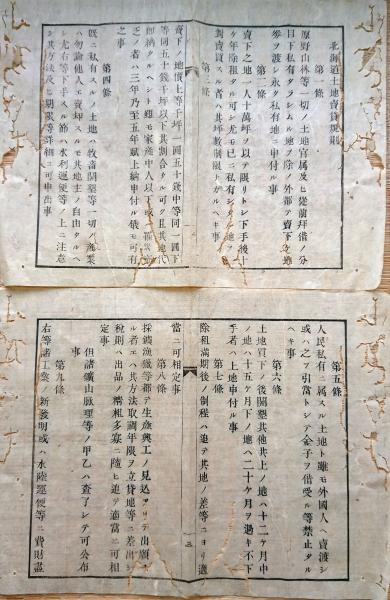 北海道土地賣貸規則
第一條
原野山林等一切ノ土地官属及ヒ從前拝借ノ分
目下私有タラシムル地ヲ除ノ外都テ賣下
券ヲ渡シ永ク私有地ニ申付ル事
第二條
賣下之地一人十萬坪ヲ以テ限リトシ下手後十
ケ年除租タル可シ尤モ已ニ私有シタル地ノ
對賣買スル者ハ其坪數制限
第三條
賣下ノ地價上等千坪一圓五十錢中等同一圓下
等同五十錢千坪以下其割合タル可ク且其地代
即納タルヘシト雖モ家産中人以下
之者ハ三年乃至五年賦上納申付ル儀モ可有
之事
第四條
既ニ私有スルノ土地ハ牧畜開墾等一切ノ産業
ハ勿論他人ニ賣却スルモ其地主ノ自由タルヘ
シ尤右等下手スル節ハ水利運便等ノ上ニ注意
シ其方法及ヒ期限等詳細ニ可申出事
第五條
人民私有ニ属スル土地ト雖モ外國人ヘ賣渡シ
或ハ之ヲ引當トシテ金子ヲ借受ル等禁止タル
ヘキ事
第六條
土地買下ノ後開墾其他共上ノ地ハ十二ケ月中
ノ地ハ十五ケ月下ノ地ヘ二十ケ月ヲ過キ不下
手者ハ上地申付ル事
第七條
除租滿期後ノ制程ハ追テ其地ノ差等ニヨリ適
當ニ可相定事
第八條
採鑛漁獵等都テ生産興工ノ見込アリテ出願ス
ル者エハ其方法取調年限ヲ立貸地等差出シ
税則ハ出品ノ精粗多寡ニ隨ヒ追テ適當ニ可相
定事
但諸鑛山脈理等ノ甲乙ハ査了シテ可公布
事
第九條
右等諸工業ノ新發明或ハ水陸運便等ニ費財盡
三